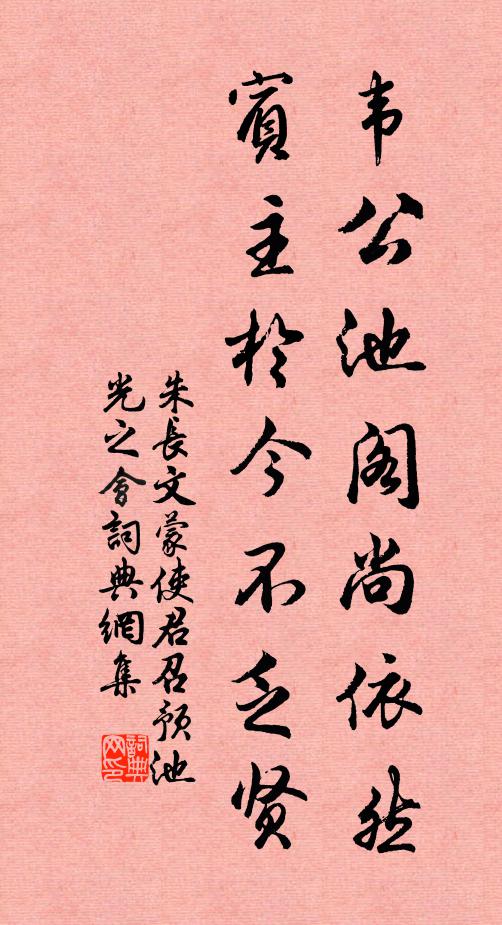 韦公池阁尚依然
賓主於今不乏贤
朱長文蒙使君召预池
光之會詞典網集
詞典网印